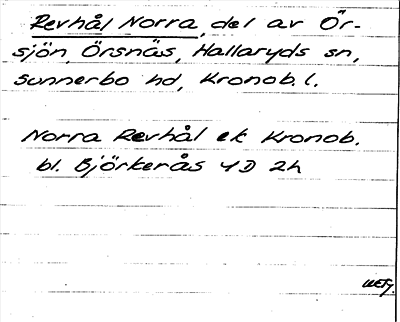 Revhål Norra, del av Ör-
sjön, Örsnäs, Hallaryds sn,
Sunnerbo hd, Kronob. l.
Norra Revhål ek Kronob.
bl. Björkerås 4D 2h